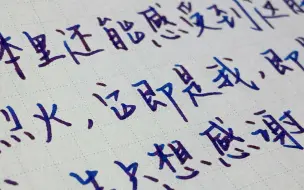 里还能感受到这
火，它即是我，即
只想感谢